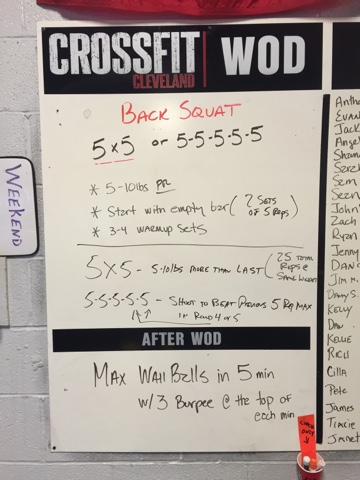 CROSSFIT
CLEVELAND
WOD
BACK SQUAT
5x5 or 5-5-5-5-5
* 5-10lbs PR
* Start with empty bar (2 SETS OF 5 REPS)
* 3-4 warmup sets
5x5 - 5-10lbs MORE THAN LAST (25 TOTAL REPS @ SAME WEIGHT)
5-5-5-5-5 - SHOOT TO BEAT PREVIOUS 5 REP MAX
IN ROUND 4 OR 5
AFTER WOD
MAX Wall Balls in 5 min
w/3 Burpee @ the top of
each min
WEEKEND
Jack
John
Zach
Ryan
Jenny
DAN
JIM M.
KELLY
Dan
KELLIE
RICH
Cilla
Pete
James
Tracie
Janet